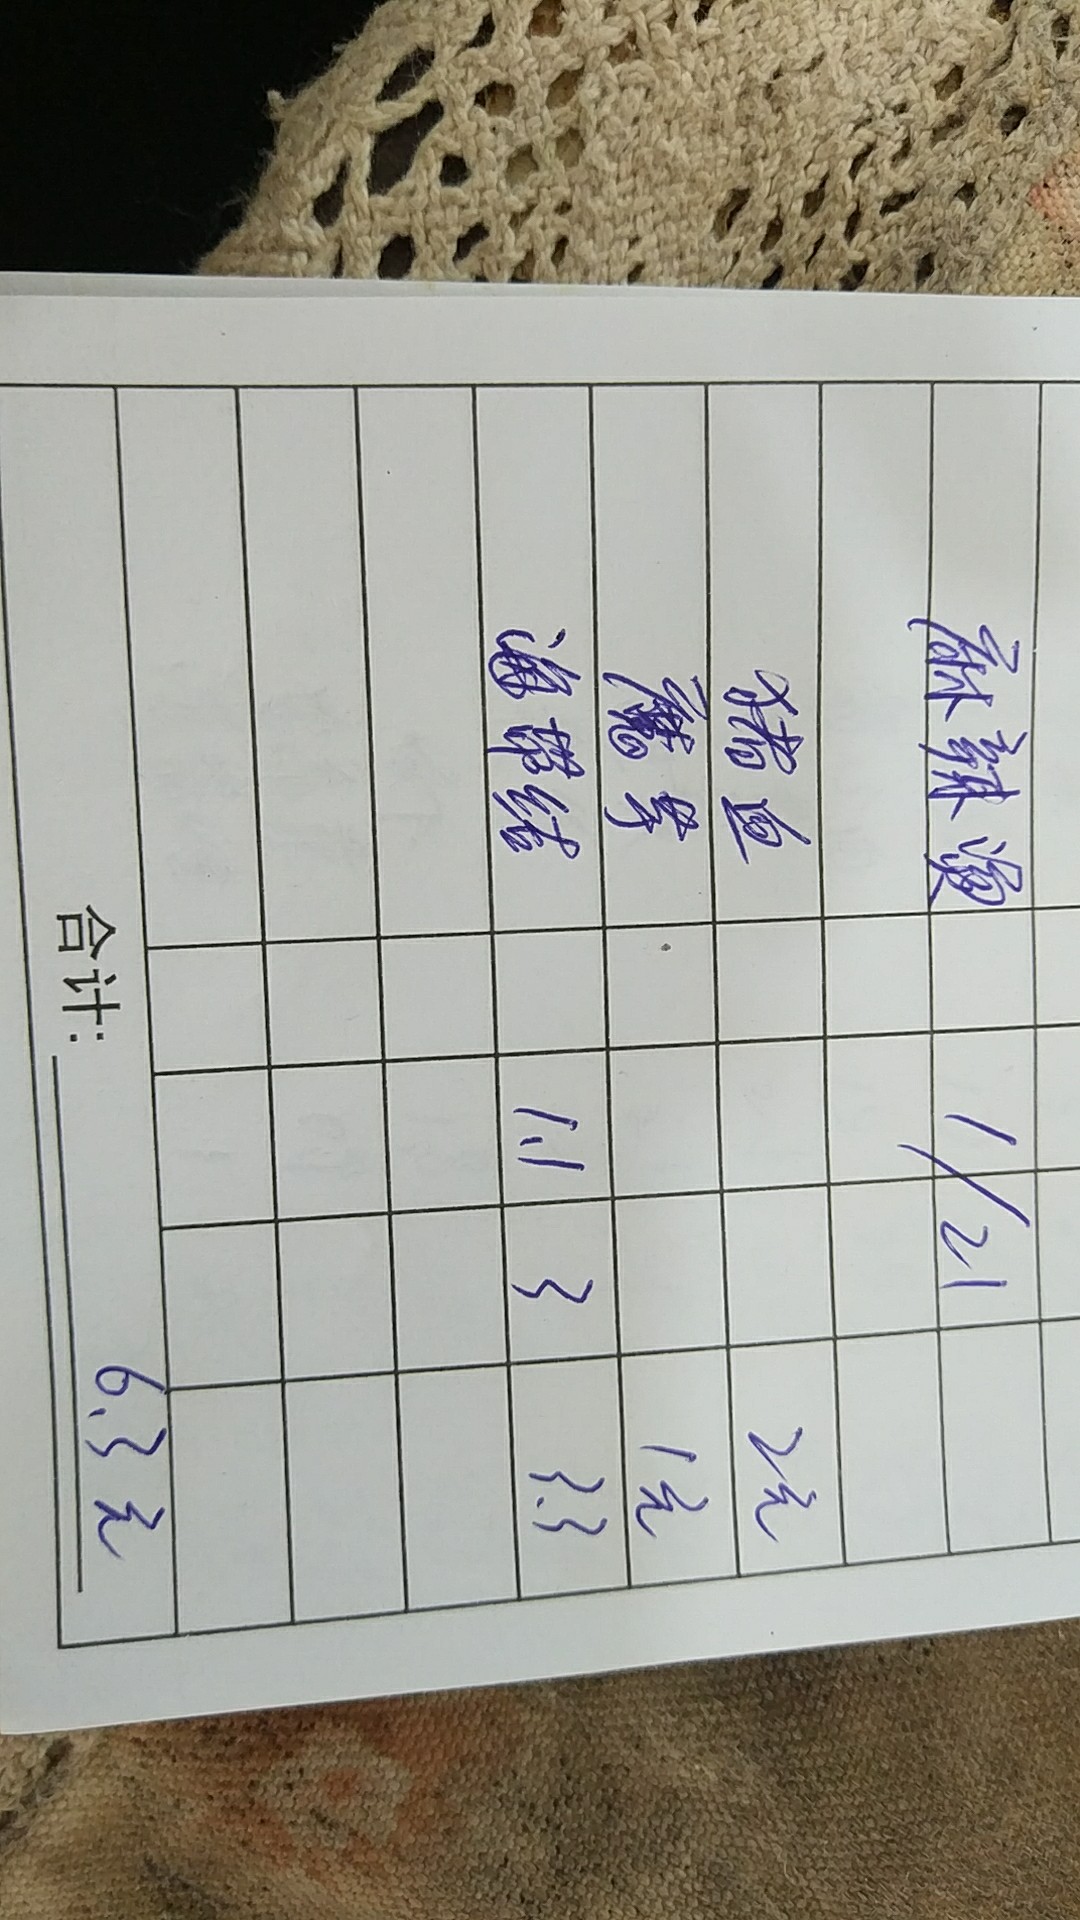 麻辣烫 1/21
猪血 2元
魔芋 1元
海带结 1.1 3 3.3
合计: 6.3元